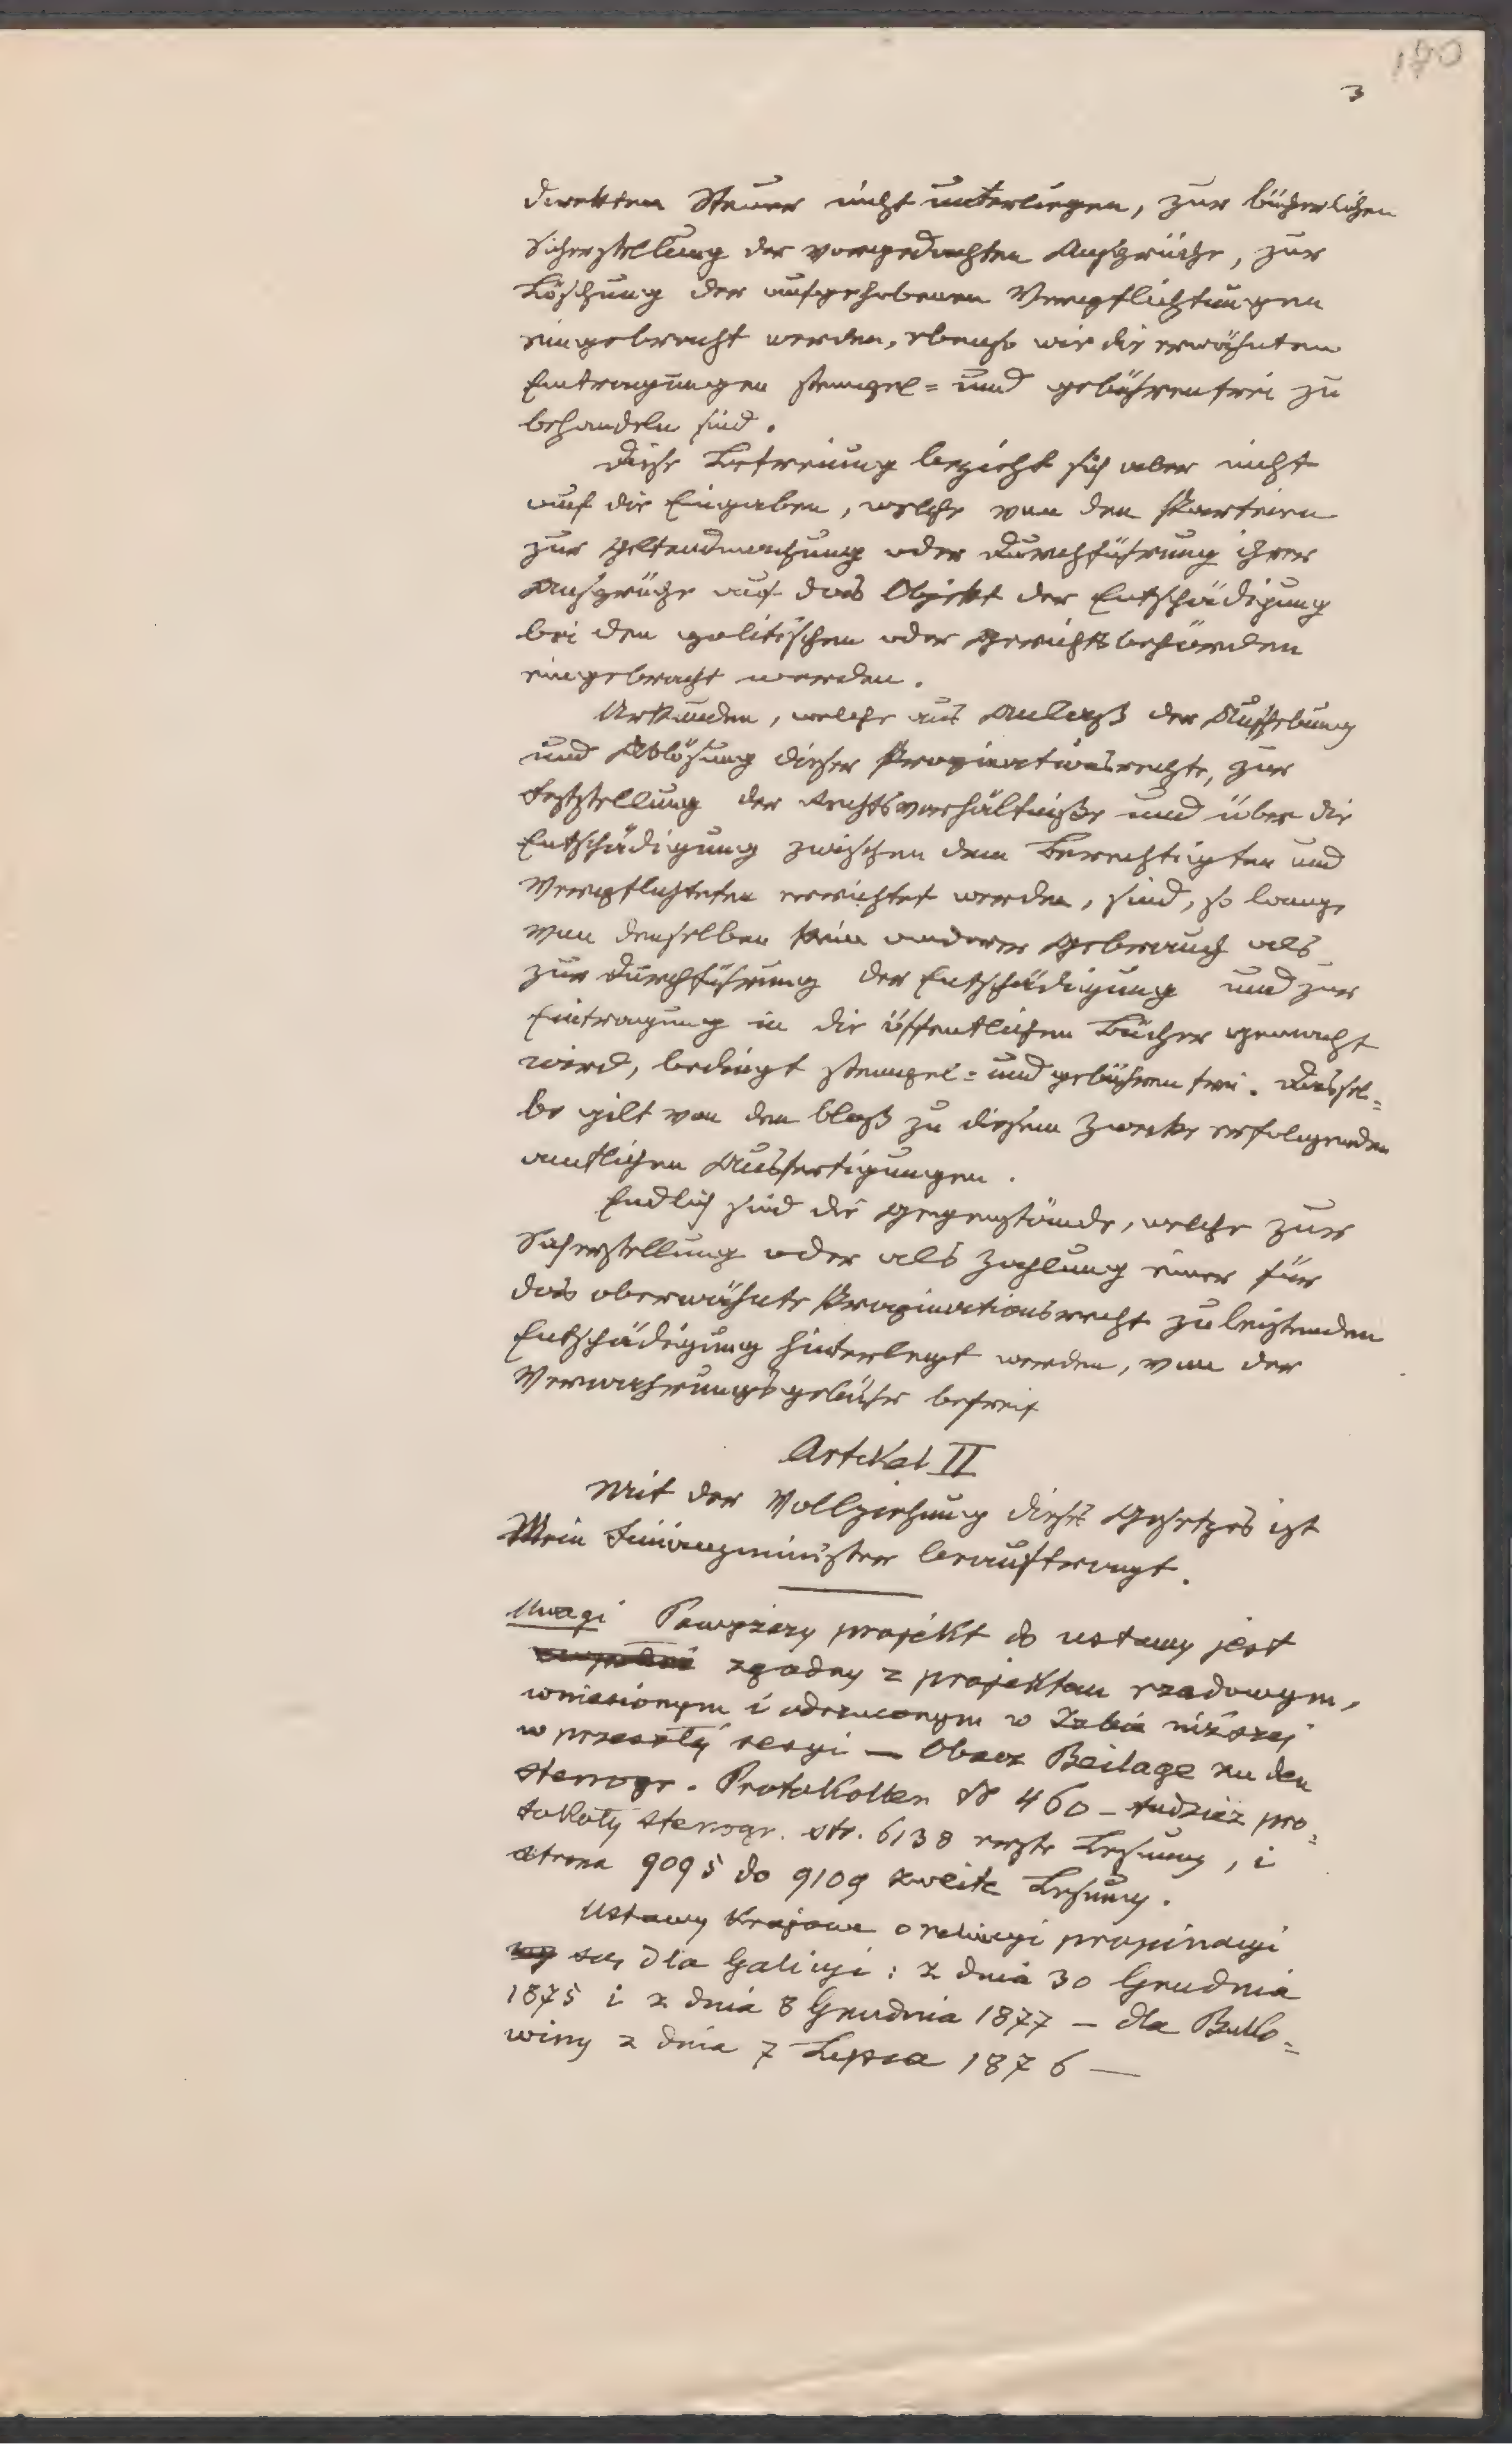 170
3
direkten Steuer nicht unterliegen, zur bücherlichen
Sicherstellung der vorgedachten Ansprüche, zur
Löschung der aufgehobenen Verpflichtungen
eingebracht werden, ebenso wie die erwähnten
Eintragungen stempel= und gebührenfrei zu
behandeln sind.
Diese Befreiung bezieht sich aber nicht
auf die Eingaben, welche von den Parteien
zur Geltendmachung oder Durchführung ihrer
Ansprüche auf das Objekt der Entschädigung
bei den politischen oder Gerichtsbehörden
eingebracht werden.
Urkunden, welche aus Anlaß der Aufhebung
und Ablösung dieser Propinationsrechte, zur
Feststellung der Rechtsverhältniße und über die
Entschädigung zwischen dem Berechtigten und
Verpflichteten errichtet werden, sind, so lange
von denselben kein anderer Gebrauch als
zur Durchführung der Entschädigung und zur
Eintragung in die öffentlichen Bücher gemacht
wird, bedingt stempel= und gebührenfrei. Dassel=
be gilt von den bloß zu diesem Zwecke erfolgenden
amtlichen Ausfertigungen.
Endlich sind die Gegenstände, welche zur
Sicherstellung oder als Zahlung einer für
das oberwähnte Propinationsrecht zu leistenden
Entschädigung hinterlegt werden, von der
Verwahrungsgebühr befreit
Artikel II
Mit der Vollziehung dieses Gesetzes ist
Mein Finanzminister beauftragt.
Uwagi Powyższy projekt do ustawy jest
zgodny z projektem rządowym,
wniesionym i odrzuconym w Izbie niższej
w przeszłéj sesyi — Obacz Beilage zu den
stenogr. Protokollen № 460 – tudzież pro=
tokoły stenogr. str. 6138 erste Lesung, i
strona 9095 do 9109 zweite Lesung.
Ustawy krajowe o relucyi propinacyi
są dla Galicyi: z dnia 30 Grudnia
1875 i z dnia 8 Grudnia 1877 – dla Buko=
winy z dnia 7 Lipca 1876 —